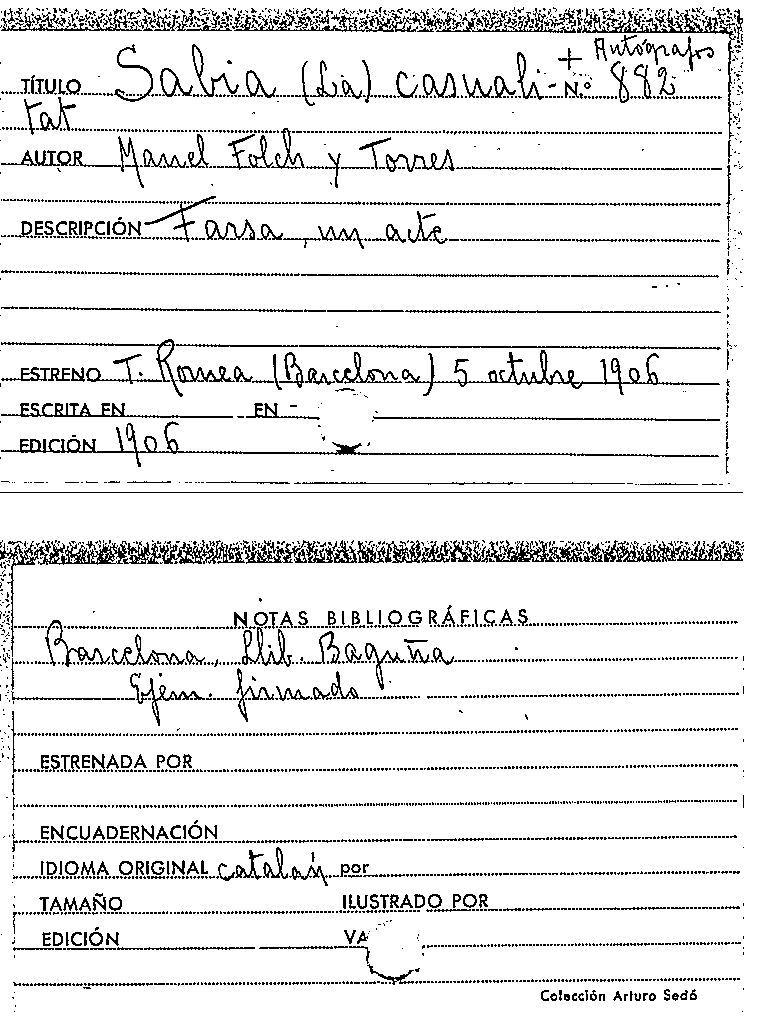 + Autógrafos
TÍTULO Sabia (La) casuali- N.º 882
tat
AUTOR Manel Folch y Torres
DESCRIPCIÓN Farsa, un acte
ESTRENO T. Romea (Barcelona) 5 octubre 1906
ESCRITA EN EN -
EDICIÓN 1906
NOTAS BIBLIOGRÁFICAS
Barcelona, Llib. Baguñá
Ejem. firmado
ESTRENADA POR
ENCUADERNACIÓN
IDIOMA ORIGINAL catalán por
TAMAÑO ILUSTRADO POR
EDICIÓN VA
Colección Arturo Sedó